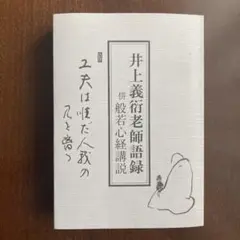 井上義衍老師語録
併 般若心経講説
工夫は唯だ人我の